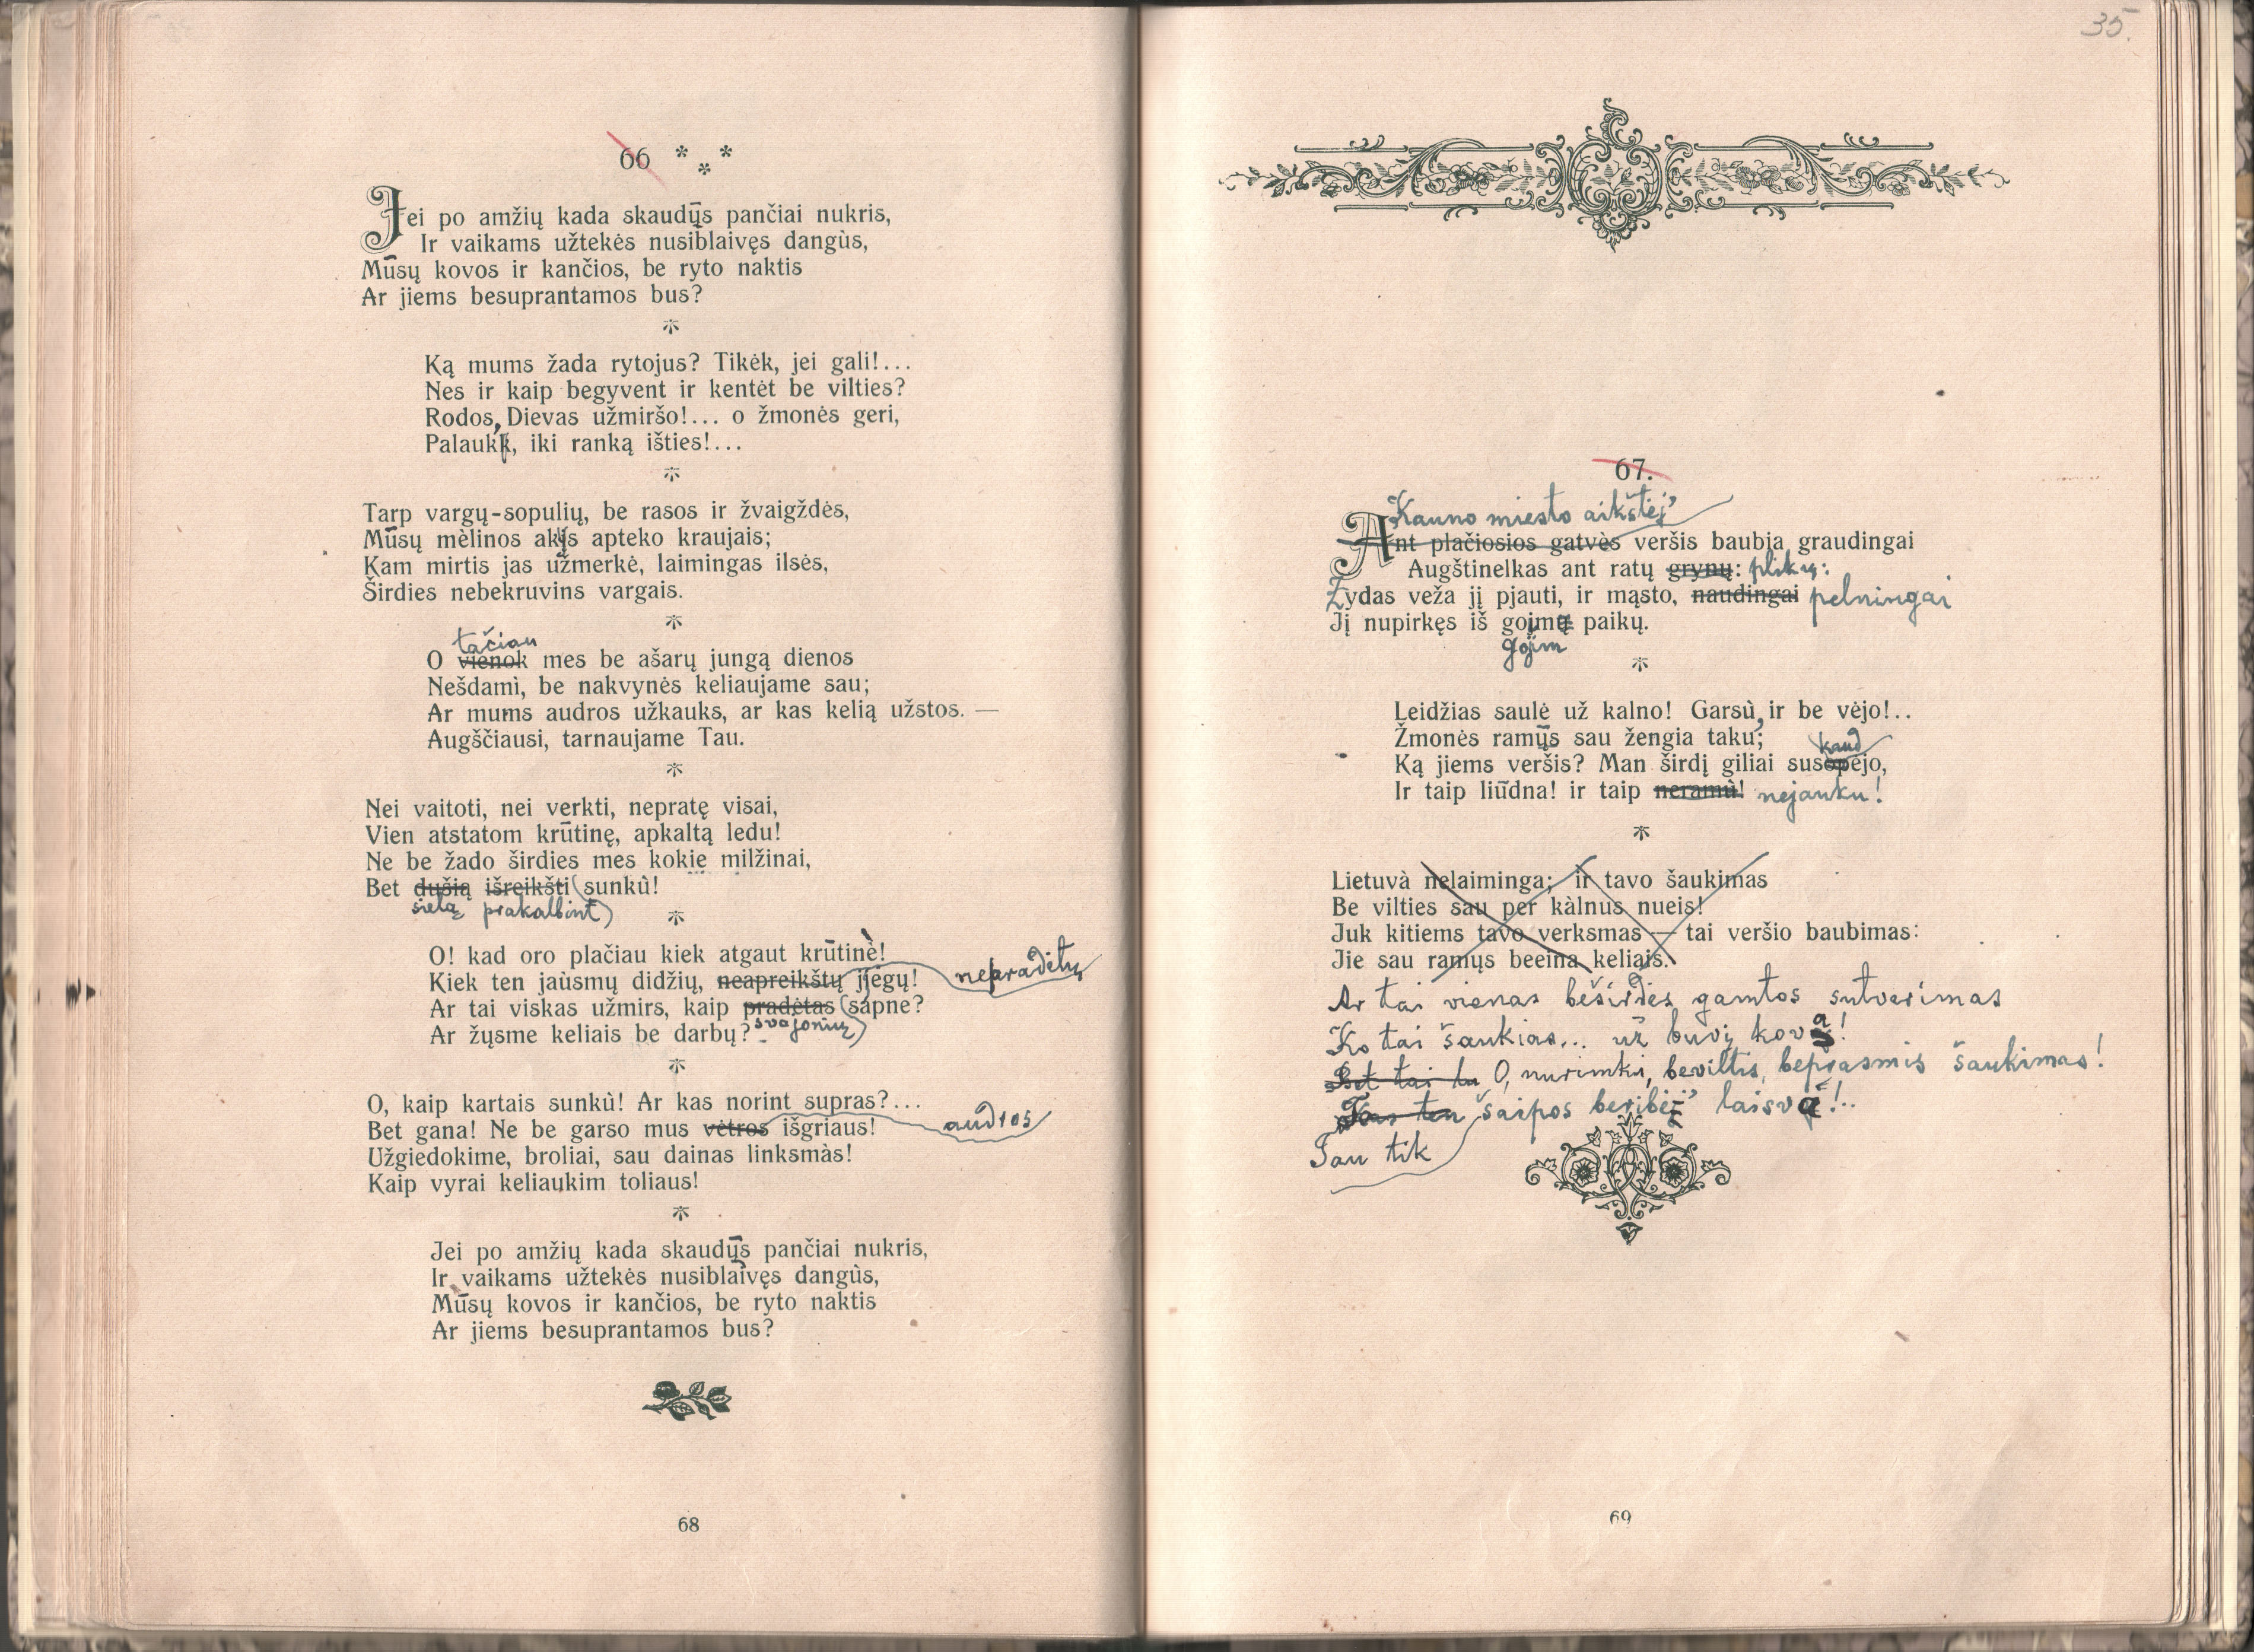 66 * * *
Jei po amžių kada skaudųs pančiai nukris,
Ir vaikams užtekės nusiblaivęs dangùs,
Mūsų kovos ir kančios, be ryto naktis
Ar jiems besuprantamos bus?
*
Ką mums žada rytojus? Tikėk, jei gali!...
Nes ir kaip begyvent ir kentėt be vilties?
Rodos, Dievas užmiršo!... o žmonės geri,
Palauk, iki ranką išties!...
*
Tarp vargų-sopulių, be rasos ir žvaigždės,
Mūsų mėlinos akįs apteko kraujais;
Kam mirtis jas užmerkė, laimingas ilsės,
Širdies nebekruvins vargais.
*
tačiau
O vienok mes be ašarų jungą dienos
Nešdami, be nakvynės keliaujame sau;
Ar mums audros užkauks, ar kas kelią užstos. —
Augščiausi, tarnaujame Tau.
*
Nei vaitoti, nei verkti, nepratę visai,
Vien atstatom krūtinę, apkaltą ledu!
Ne be žado širdies mes kokie milžinai,
Bet dušią išreikšti sunkù!
sielą prakalbint
*
O! kad oro plačiau kiek atgaut krūtinė!
Kiek ten jaùsmų didžių, neapreikštų jiėgų! nepradėtų
Ar tai viskas užmirs, kaip pradėtas sapne?
Ar žųsme keliais be darbų? svajonių
*
O, kaip kartais sunkù! Ar kas norint supras?...
Bet gana! Ne be garso mus vėtros išgriaus! audros
Užgiedokime, broliai, sau dainas linksmàs!
Kaip vyrai keliaukim toliaus!
*
Jei po amžių kada skaudųs pančiai nukris,
Ir vaikams užtekės nusiblaivęs dangùs,
Mūsų kovos ir kančios, be ryto naktis
Ar jiems besuprantamos bus?
68
35.
67.
"Kauno miesto aikštėj"
Ant plačiosios gatvės veršis baubia graudingai
Augštinelkas ant ratų grynų: plikų:
Žydas veža jį pjauti, ir mąsto, naudingai pelningai
Jį nupirkęs iš goimų paikų.
gojim
*
Leidžias saulė už kalno! Garsù, ir be vėjo!..
Žmonės ramųs sau žengia taku;
kaud
Ką jiems veršis? Man širdį giliai susopėjo,
Ir taip liūdna! ir taip neramù! nejauku!
*
Lietuvà nelaiminga; ir tavo šaukimas
Be vilties sau per kàlnus nueis!
Juk kitiems tavo verksmas — tai veršio baubimas:
Jie sau ramųs beeina keliais.
Ar tai vienas beširdės gamtos sutverimas
Ko tai šaukias... už buvį kova!
Bet tai tu O, nurimki, beviltis, beprasmis šaukimas!
šaipos beribė laisvė!..
Tau tik
69